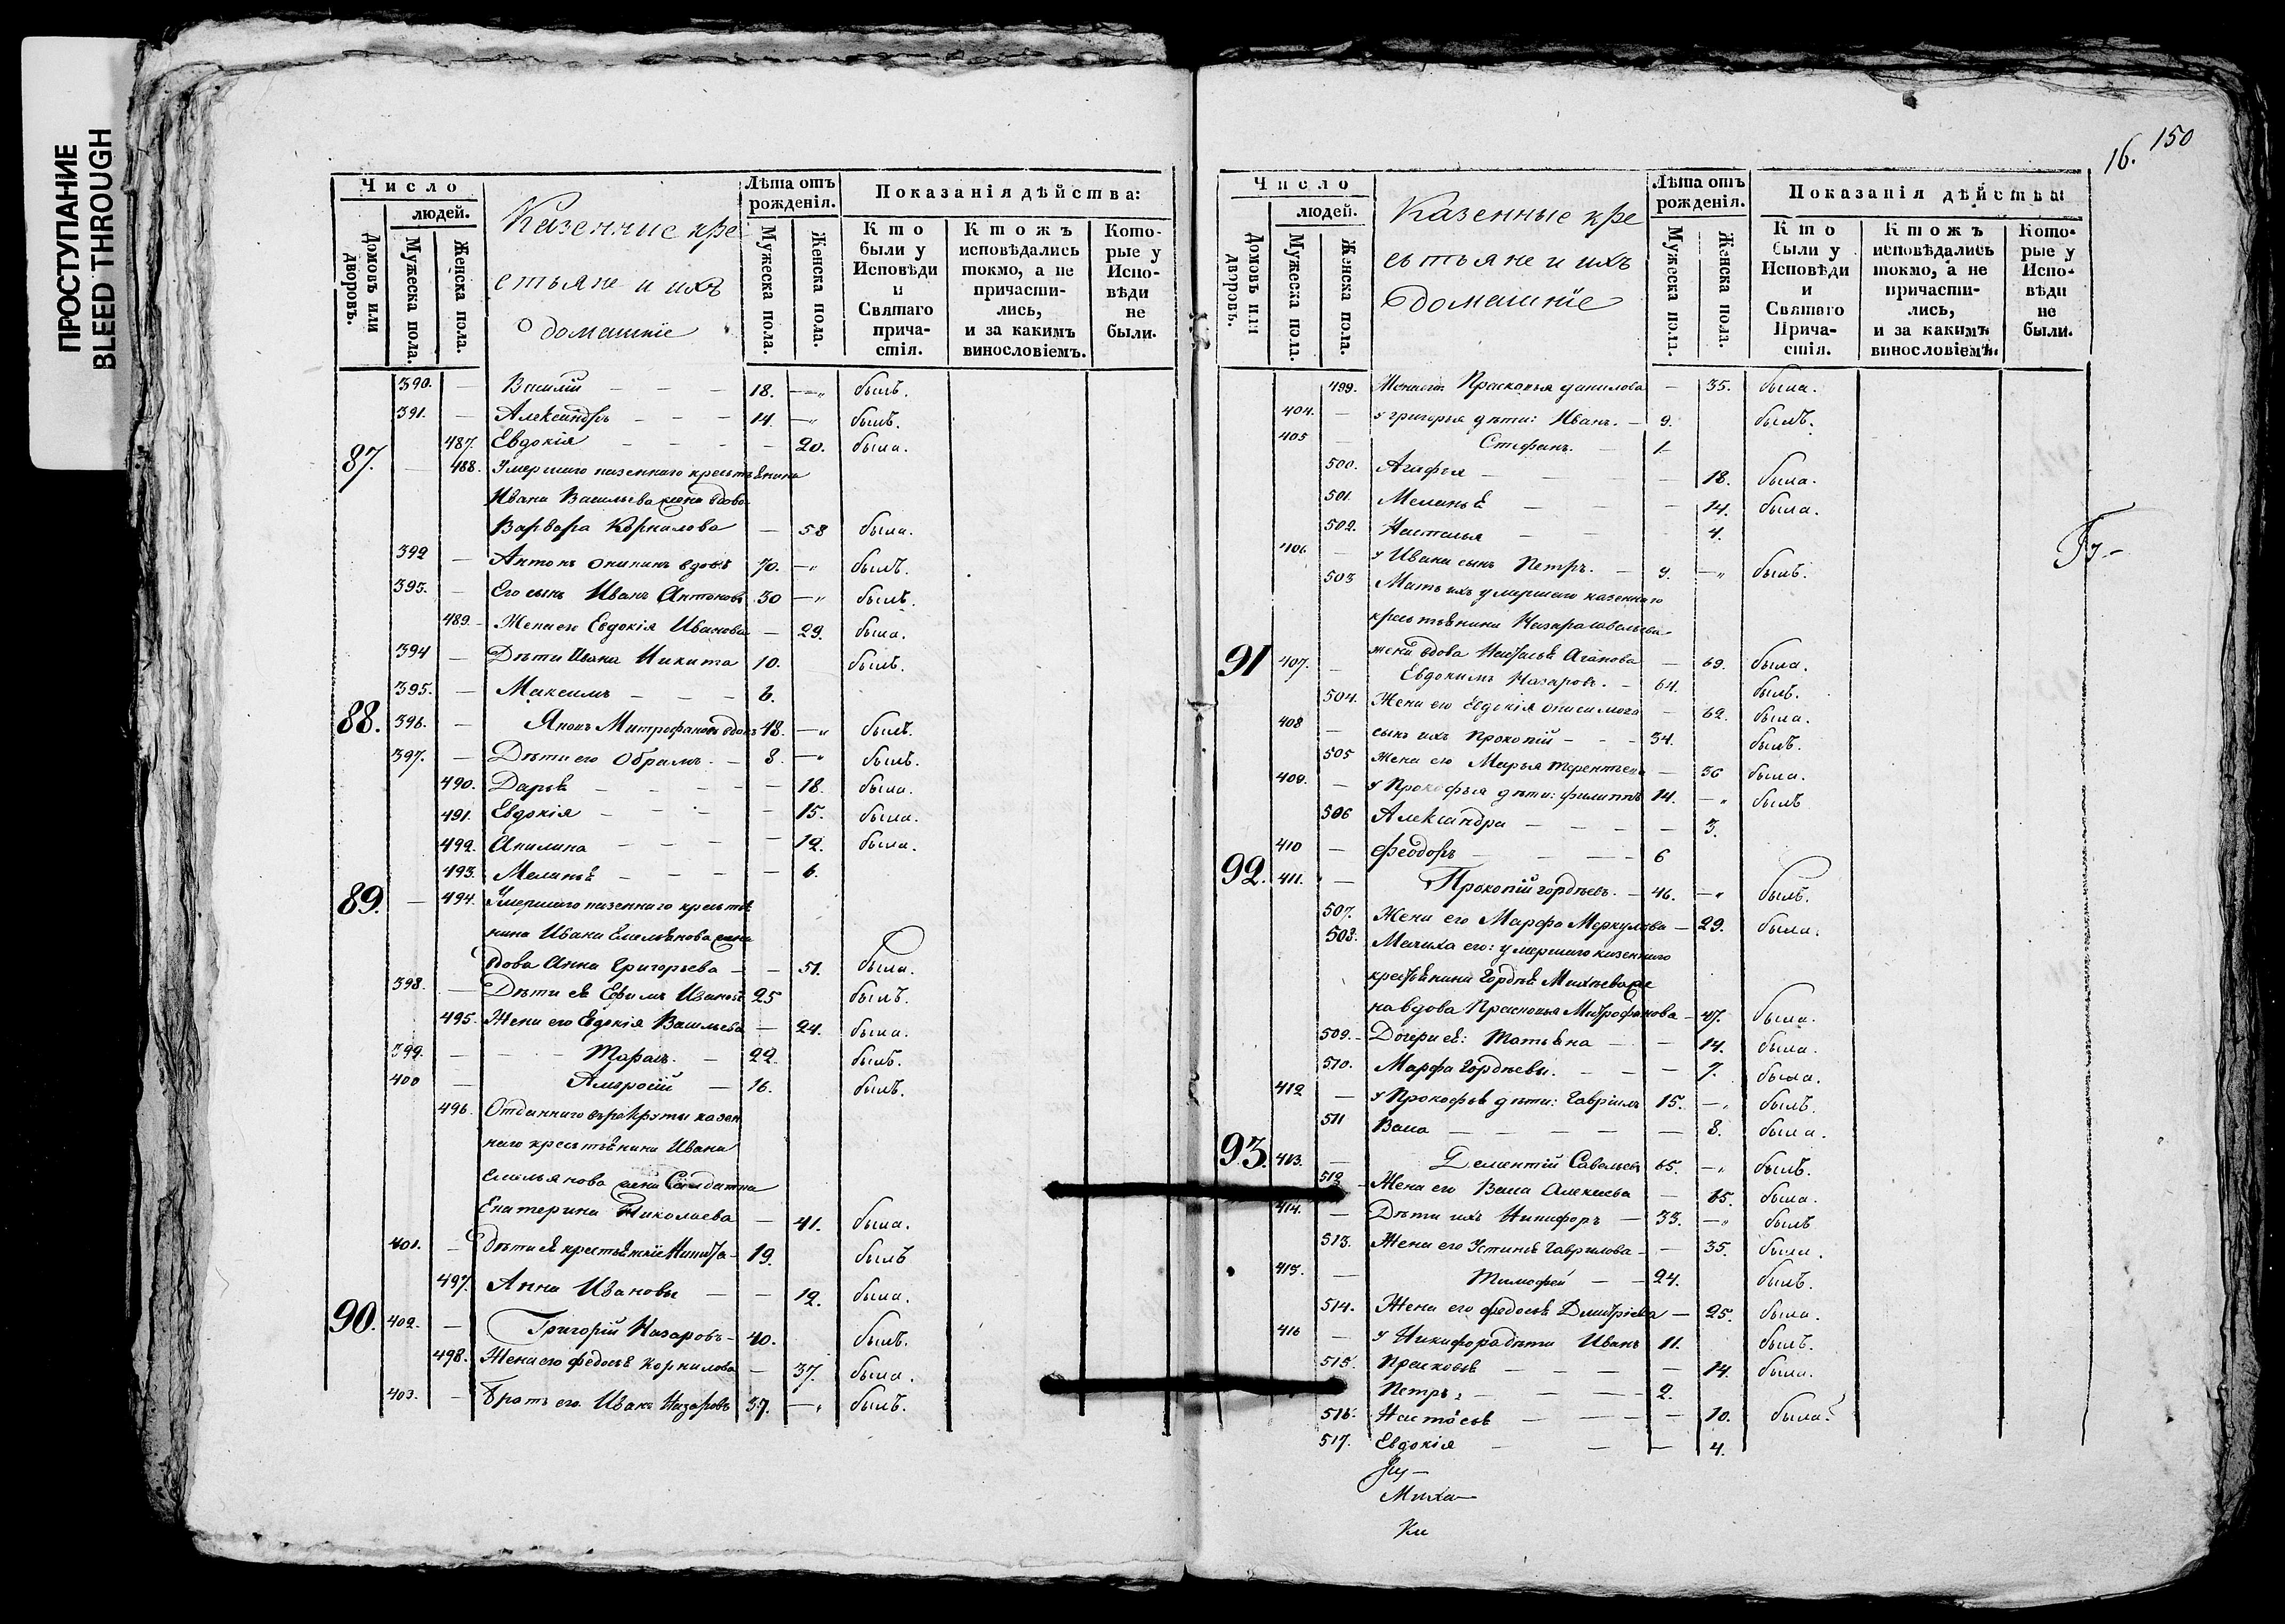 ПРОСТУПАНИЕ
BLEED THROUGH
Число
людей.
Домовъ или дворовъ.
Мужеска пола.
Женска пола.
Казенные кре
стьяне и ихъ
домашніе
Лѣта отъ рожденія.
Мужеска пола.
Женска пола.
Показанія дѣйства:
Кто были у Исповѣди и Святаго причастія.
Ктожъ исповѣдались токмо, а не причастились, и за какимъ винословіемъ.
Которые у Исповѣди не были.
390. — Василій — — — 18. —„ былъ.
391. — Александръ — — — 14. —„ былъ.
487. Евдокія — — — — 20. была.
87. — 488. Умершаго казеннаго крестьянина
Ивана Васильева жена вдова
Варвара Корнилова — 58 была.
392 — Антонъ вдовъ 70. —„ былъ.
393. — Его сынъ Иванъ Антоновъ 30 —„ былъ.
489. — Жена его Евдокія Иванова — 29. была.
394 — Дѣти Ивана Никита 10. былъ.
395. — Максимъ — — — 6.
88. 396. — Яковъ Митрофановъ вдовъ 48. —„ былъ.
397. — Дѣти его Обрамъ. — 8. —„ былъ.
490. Дарья — — — — 18. была.
491. Евдокія — — — — 15. была.
492. Акилина — — — — 12. была.
493. Меланья — — — — 6.
89. — 494. Умершаго казеннаго крестья
нина Ивана Емельянова жена
вдова Анна Григорьева — — 51. была.
398. — Дѣти ея Ефимъ Ивановъ 25 былъ.
495. Жена его Евдокія Васильева — 24. была.
399. — — Тарасъ. — 22. былъ.
400 — Амвросій — 16. былъ.
496. Отданнаго въ рекруты казен
наго крестьянина Ивана
Емельянова жена Солдатка
Екатерина Николаева — 41. была.
401. — Дѣти ея крестьянскіе Никита — 19. былъ
497. Анна Ивановы — — 12. была.
90. 402. — Григорій Назаровъ — 40. былъ.
498. Жена его Федосья Корнилова — 37. была.
403. — Братъ его Иванъ Назаровъ 37. —„ былъ.
16. 150
Число
людей.
Домовъ или дворовъ.
Мужеска пола.
Женска пола.
Казенные кре
стьяне и ихъ
домашніе
Лѣта отъ рожденія.
Мужеска пола.
Женска пола.
Показанія дѣйства
Кто были у Исповѣди и Святаго Причастія.
Ктожъ исповѣдались токмо, а не причастились, и за какимъ винословіемъ.
Которые у Исповѣди не были.
499. Жена его Прасковья Данилова — 35. была.
404. — у Григорья дѣти: Иванъ. — 9. былъ.
405 — Стефанъ. — 1.
500. Агафья — — — 18. была.
501. Меланья — — — 14. была.
502. Наталья — — — 4.
406 — у Ивана сынъ Петръ. — 9. —„ былъ.
503 Мать ихъ умершаго казеннаго
крестьянина Назара Савельева
жена вдова Настасья — 69. была.
91 407. — Евдокимъ Назаровъ. — 64. былъ.
504. Жена его Евдокія — 62. была.
408 — сынъ ихъ Прокопій — — — 34. былъ.
505 Жена его Марья Терентьева — 36 была.
409. — у Прокофья дѣти: Филиппъ 14. —„ былъ
506 Александра — — — — 3.
410 — Феодоръ — — — — 6
92. 411. — Прокопій Гордѣевъ. — 46. —„ былъ.
507. Жена его Марфа Меркулова — 29. была.
508. Мачиха его: умершаго казеннаго
крестьянина Гордѣя Михѣева же
на вдова Прасковья Митрофанова — 47. была.
509. — Дочери ея: Татьяна — — 14. была.
510. Марфа Гордѣевы. — — — 7. была.
412 — у Прокофья дѣти: Гавріилъ 15. —„ былъ.
511 Васса — — — — — 8. была.
93. 413. — Дементій Савельевъ 65. —„ былъ.
512 — Жена его Васса Алексѣева — 65. была.
414. — Дѣти ихъ Никифоръ — 33. —„ былъ
513. Жена его Устинья Гаврилова — — 35. была.
415. — Тимофей — — 24. былъ.
514. Жена его Федосья Дмитріева — 25. была.
416 — у Никифора дѣти Иванъ 11. былъ.
515. Прасковья — — — — 14. была.
Петръ — — — 2.
516. Настасья — — — — 10. была.
517. Евдокія — — — 4.
Миха—